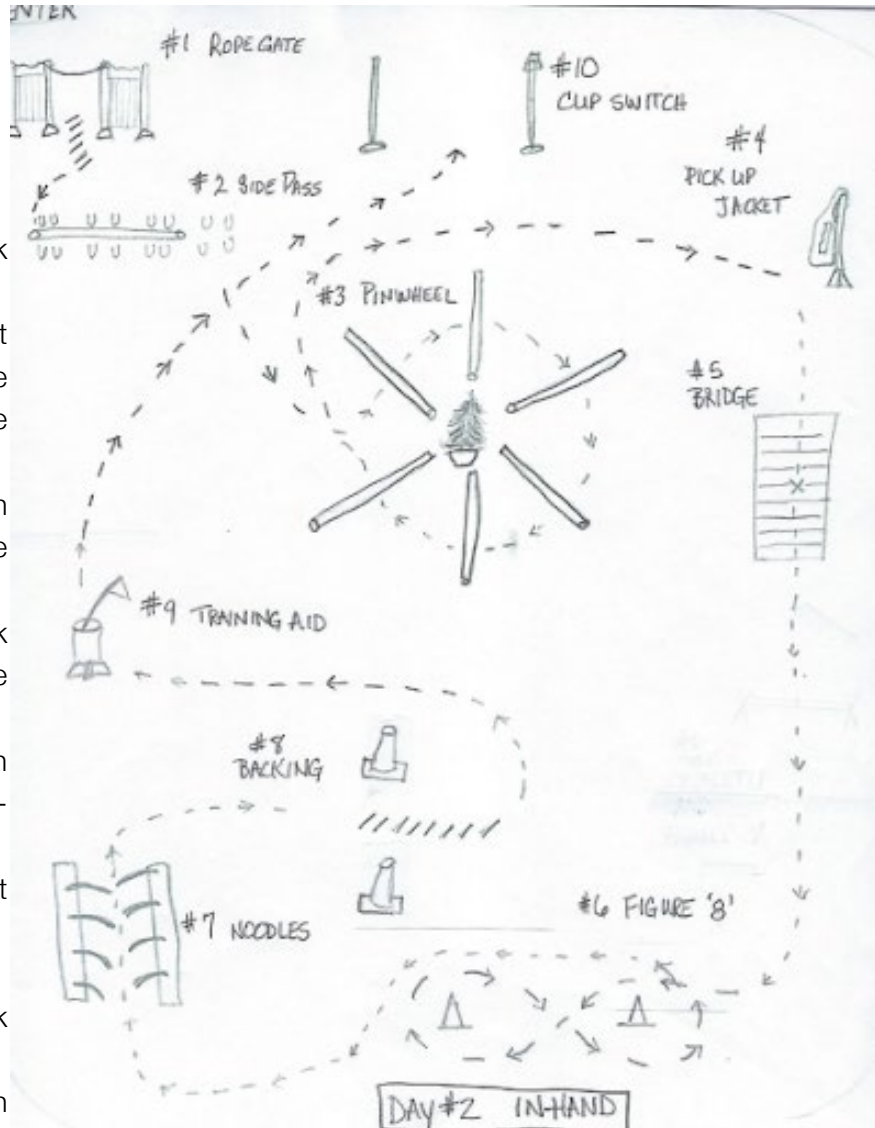 #1 ROPE GATE
#10
CUP SWITCH
#4
PICK UP
JACKET
#2 SIDE PASS
#3 PINWHEEL
#5
BRIDGE
#9 TRAINING AID
#8
BACKING
#6 FIGURE '8'
#7 NOODLES
DAY #2 IN-HAND